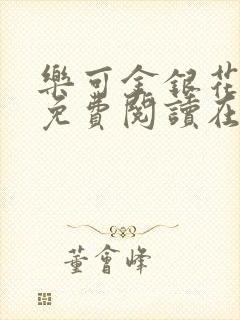 樂可金銀花
免費閱讀在
董會峰